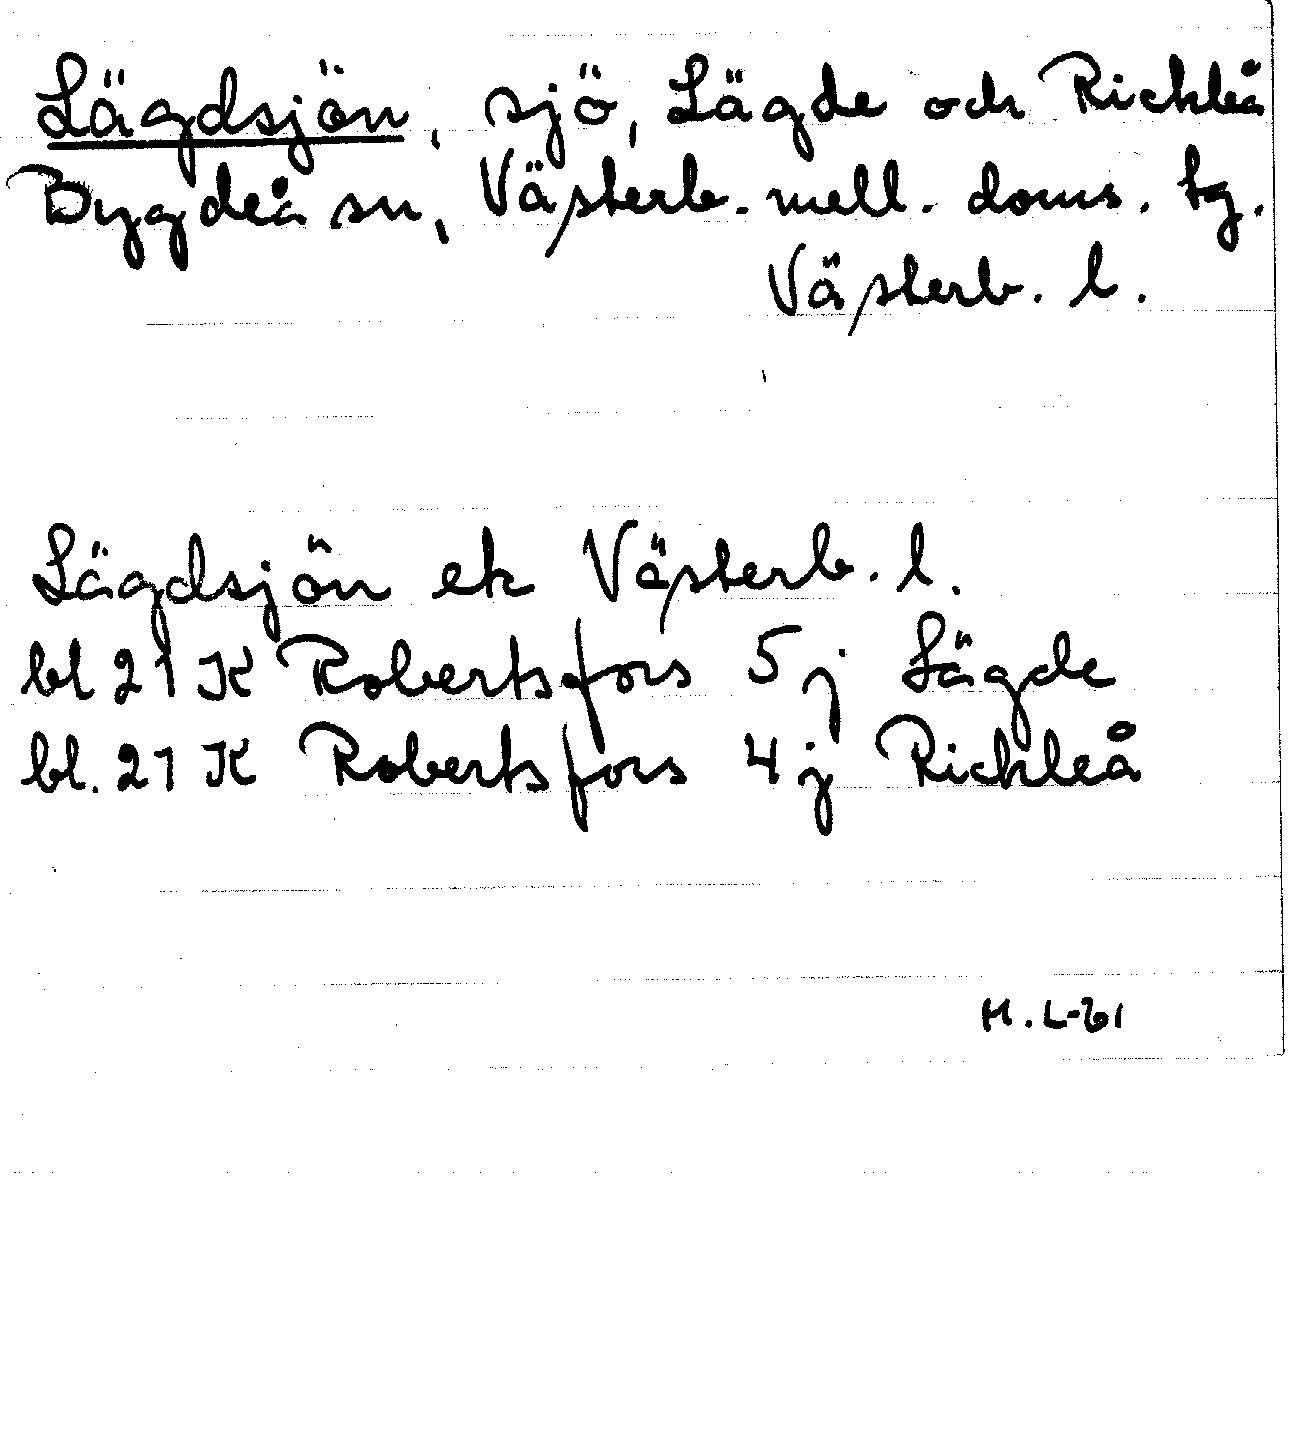 Lägdsjön, sjö, Lägde och Rickleå
Bygdeå sn, Västerb. mell. doms. tg.
Västerb. l.
Lägdsjön ek Västerb. l.
bl 21 K Robertsfors 5 j Lägde
bl. 21 K Robertsfors 4 j Rickleå
H. L-61